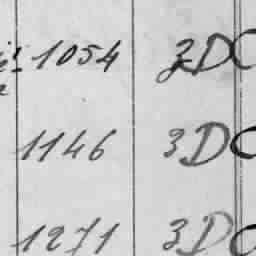 1054 3DC
1146 3DC
1271 3DC